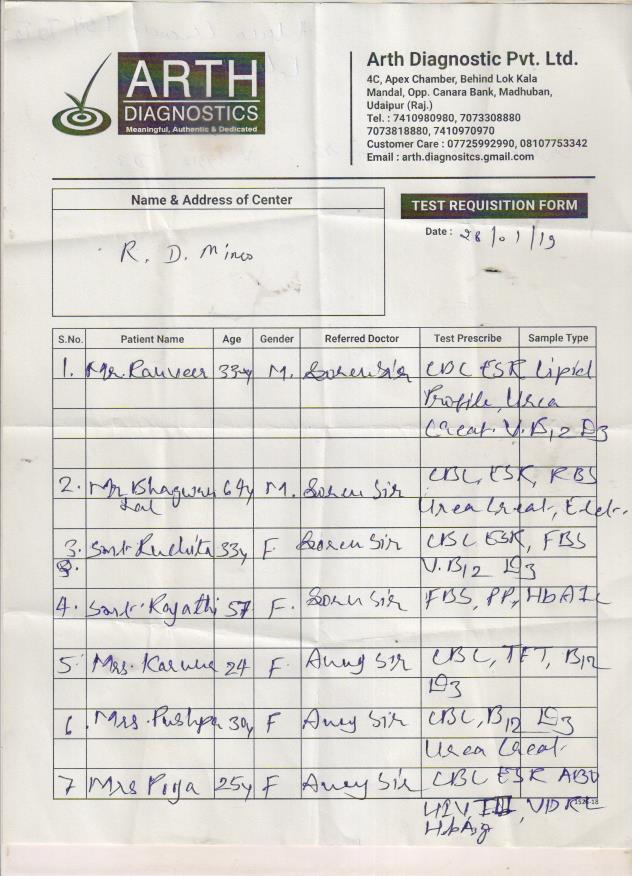 ARTH
DIAGNOSTICS
Meaningful, Authentic & Dedicated
Arth Diagnostic Pvt. Ltd.
4C, Apex Chamber, Behind Lok Kala
Mandal, Opp. Canara Bank, Madhuban,
Udaipur (Raj.)
Tel. : 7410980980, 7073308880
7073818880, 7410970970
Customer Care : 07725992990, 08107753342
Email : arth.diagnositcs.gmail.com
Name & Address of Center
TEST REQUISITION FORM
Date : 28/01/19
R. D. Mines
S.No. Patient Name Age Gender Referred Doctor Test Prescribe Sample Type
1. Mr. Ranveer 33y M. Soren Sir CBC ESR Lipid
Profile, Urea
Creat. V. B12 D3
2. Mr Bhagwan 64y M. Soren Sir CBC, ESR, RBS
Lal Urea Creat, Elct.
3. Smt. Ruchita 33y F Soren Sir CBC ESR, FBS
V. B12 D3
4. Smt. 57 F. Soren Sir FBS, PP, HbA1c
5. Mrs. 24 F. Anuj Sir CBC, TFT, B12
D3
6 Mrs. Pushpa 30y F Anuj Sir CBC, B12 D3
Urea Creat.
7 Mrs Priya 25y F Anuj Sir CBC ESR ABO
HIV, VDRL
HbAg
1526-18